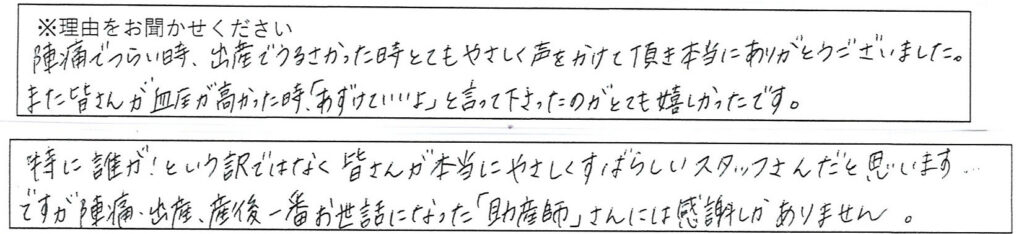 ※理由をお聞かせください
陣痛でつらい時、出産でうるさかった時とてもやさしく声をかけて頂き本当にありがとうございました。
また皆さんが血圧が高かった時、「あずけていいよ」と言って下さったのがとても嬉しかったです。
特に誰が!という訳ではなく皆さんが本当にやさしくすばらしいスタッフさんだと思います…
ですが陣痛、出産、産後一番お世話になった「助産師」さんには感謝しかありません。